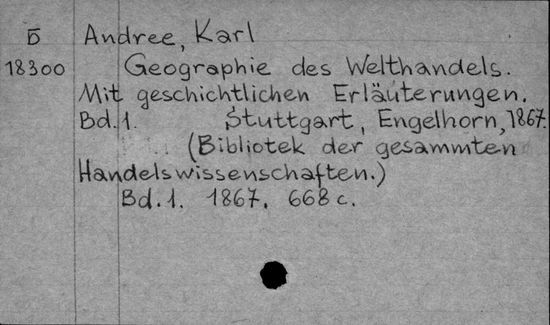 Б Andree, Karl
18300 Geographie des Welthandels.
Mit geschichtlichen Erläuterungen.
Bd. 1. Stuttgart, Engelhorn, 1867.
(Bibliotek der gesammten
Handelswissenschaften.)
Bd. 1. 1867. 668 с.